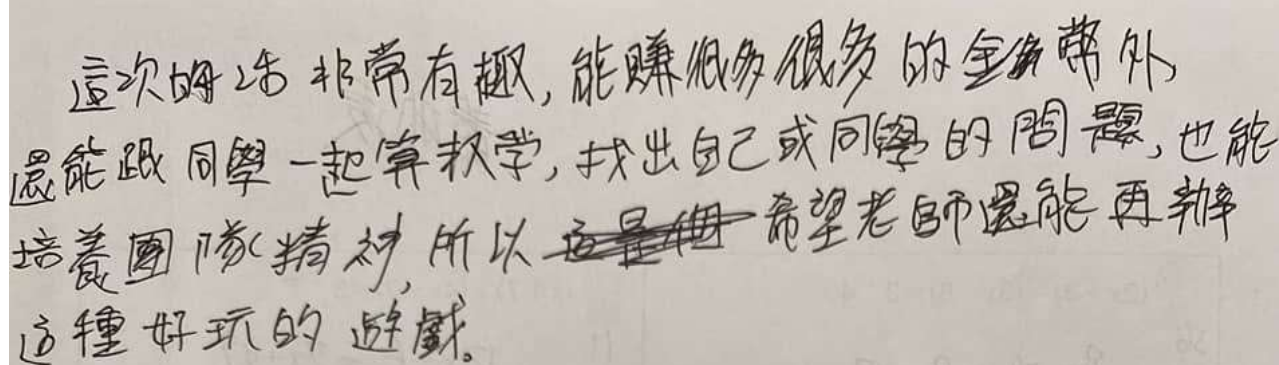 這次的活非常有趣,能賺很多很多的金幣外,
還能跟同學一起算数学,找出自己或同學的問題,也能
培養團隊精神,所以希望老師還能再辦
這種好玩的遊戲。